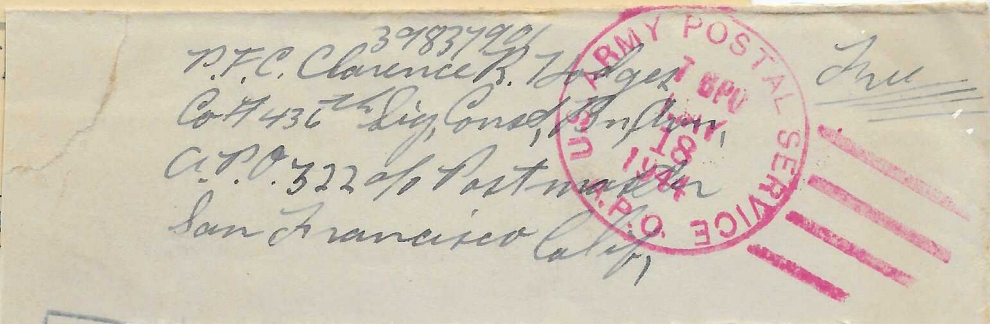 39837901
P.F.C. Clarence R. Hodges
Co A 436th Sig, Const, Bn, Avn,
A.P.O. 322 c/o Postmaster
San Francisco Calif,
Free
U.S. ARMY POSTAL SERVICE
A.P.O.
18
1944